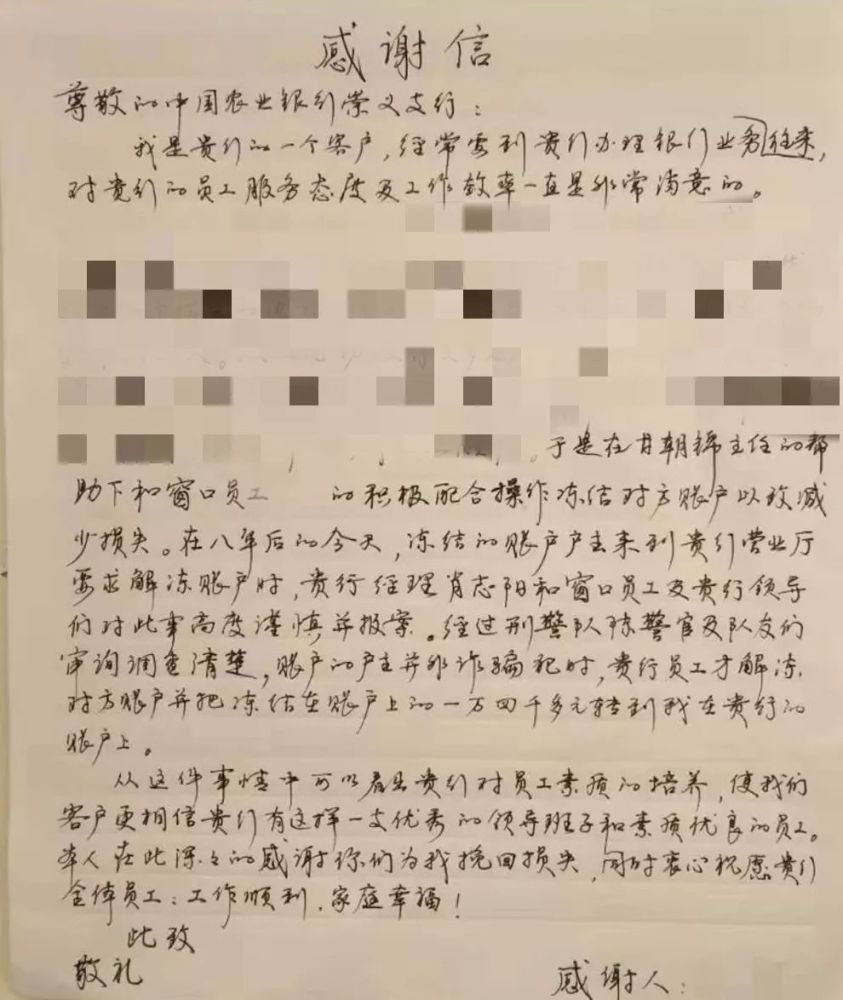 感谢信
尊敬的中国农业银行崇义支行：
我是贵行的一个客户，经常要到贵行办理银行业务往来，
对贵行的员工服务态度及工作效率一直是非常满意的。
于是在甘朝锦主任的帮
助下和窗口员工 的积极配合操作冻结对方账户以致减
少损失。在八年后的今天，冻结的账户户主来到贵行营业厅
要求解冻账户时，贵行经理肖志阳和窗口员工及贵行领导
们对此事高度谨慎并报案。经过刑警队陈警官及队友们
审询调查清楚，账户的户主并非诈骗犯时，贵行员工才解冻
对方账户并把冻结在账户上的一万四千多元转到我在贵行的
账户上。
从这件事情中可以看出贵行对员工素质的培养，使我们
客户更相信贵行有这样一支优秀的领导班子和素质优良的员工。
本人在此深々的感谢你们为我挽回损失，同时衷心祝愿贵行
全体员工：工作顺利．家庭幸福！
此致
敬礼
感谢人：